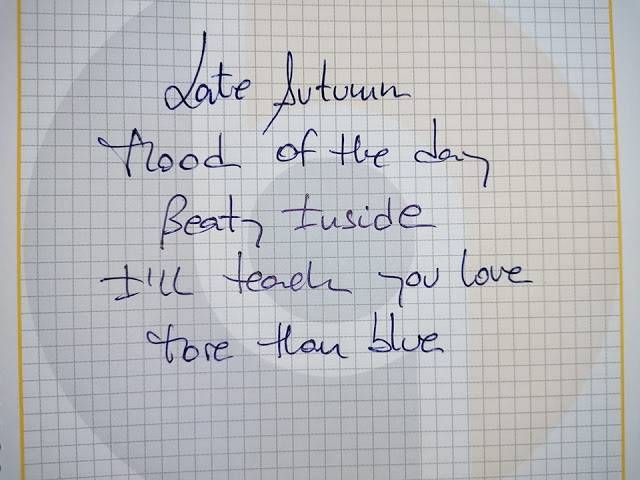 Late Autumn
Mood of the day
Beaty Inside
I'll teach you love
More than blue